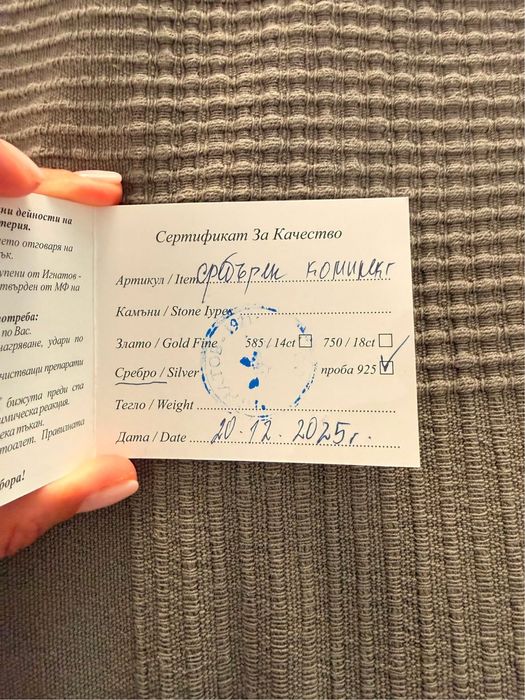 ни дейности на
терия.
ето отговаря на
ък.
упени от Игнатов -
твърден от МФ на
потреба:
по Вас.
нагряване, удари по
чистващи препарати
бижута преди спа
имическа реакция.
ека тъкан.
тоалет. Правилната
бора!
Сертификат За Качество
Артикул / Item сребърен комплект
Камъни / Stone Types
Злато / Gold Fine 585 / 14ct 750 / 18ct
Сребро / Silver проба 925
Тегло / Weight
Дата / Date 20.12.2025г.